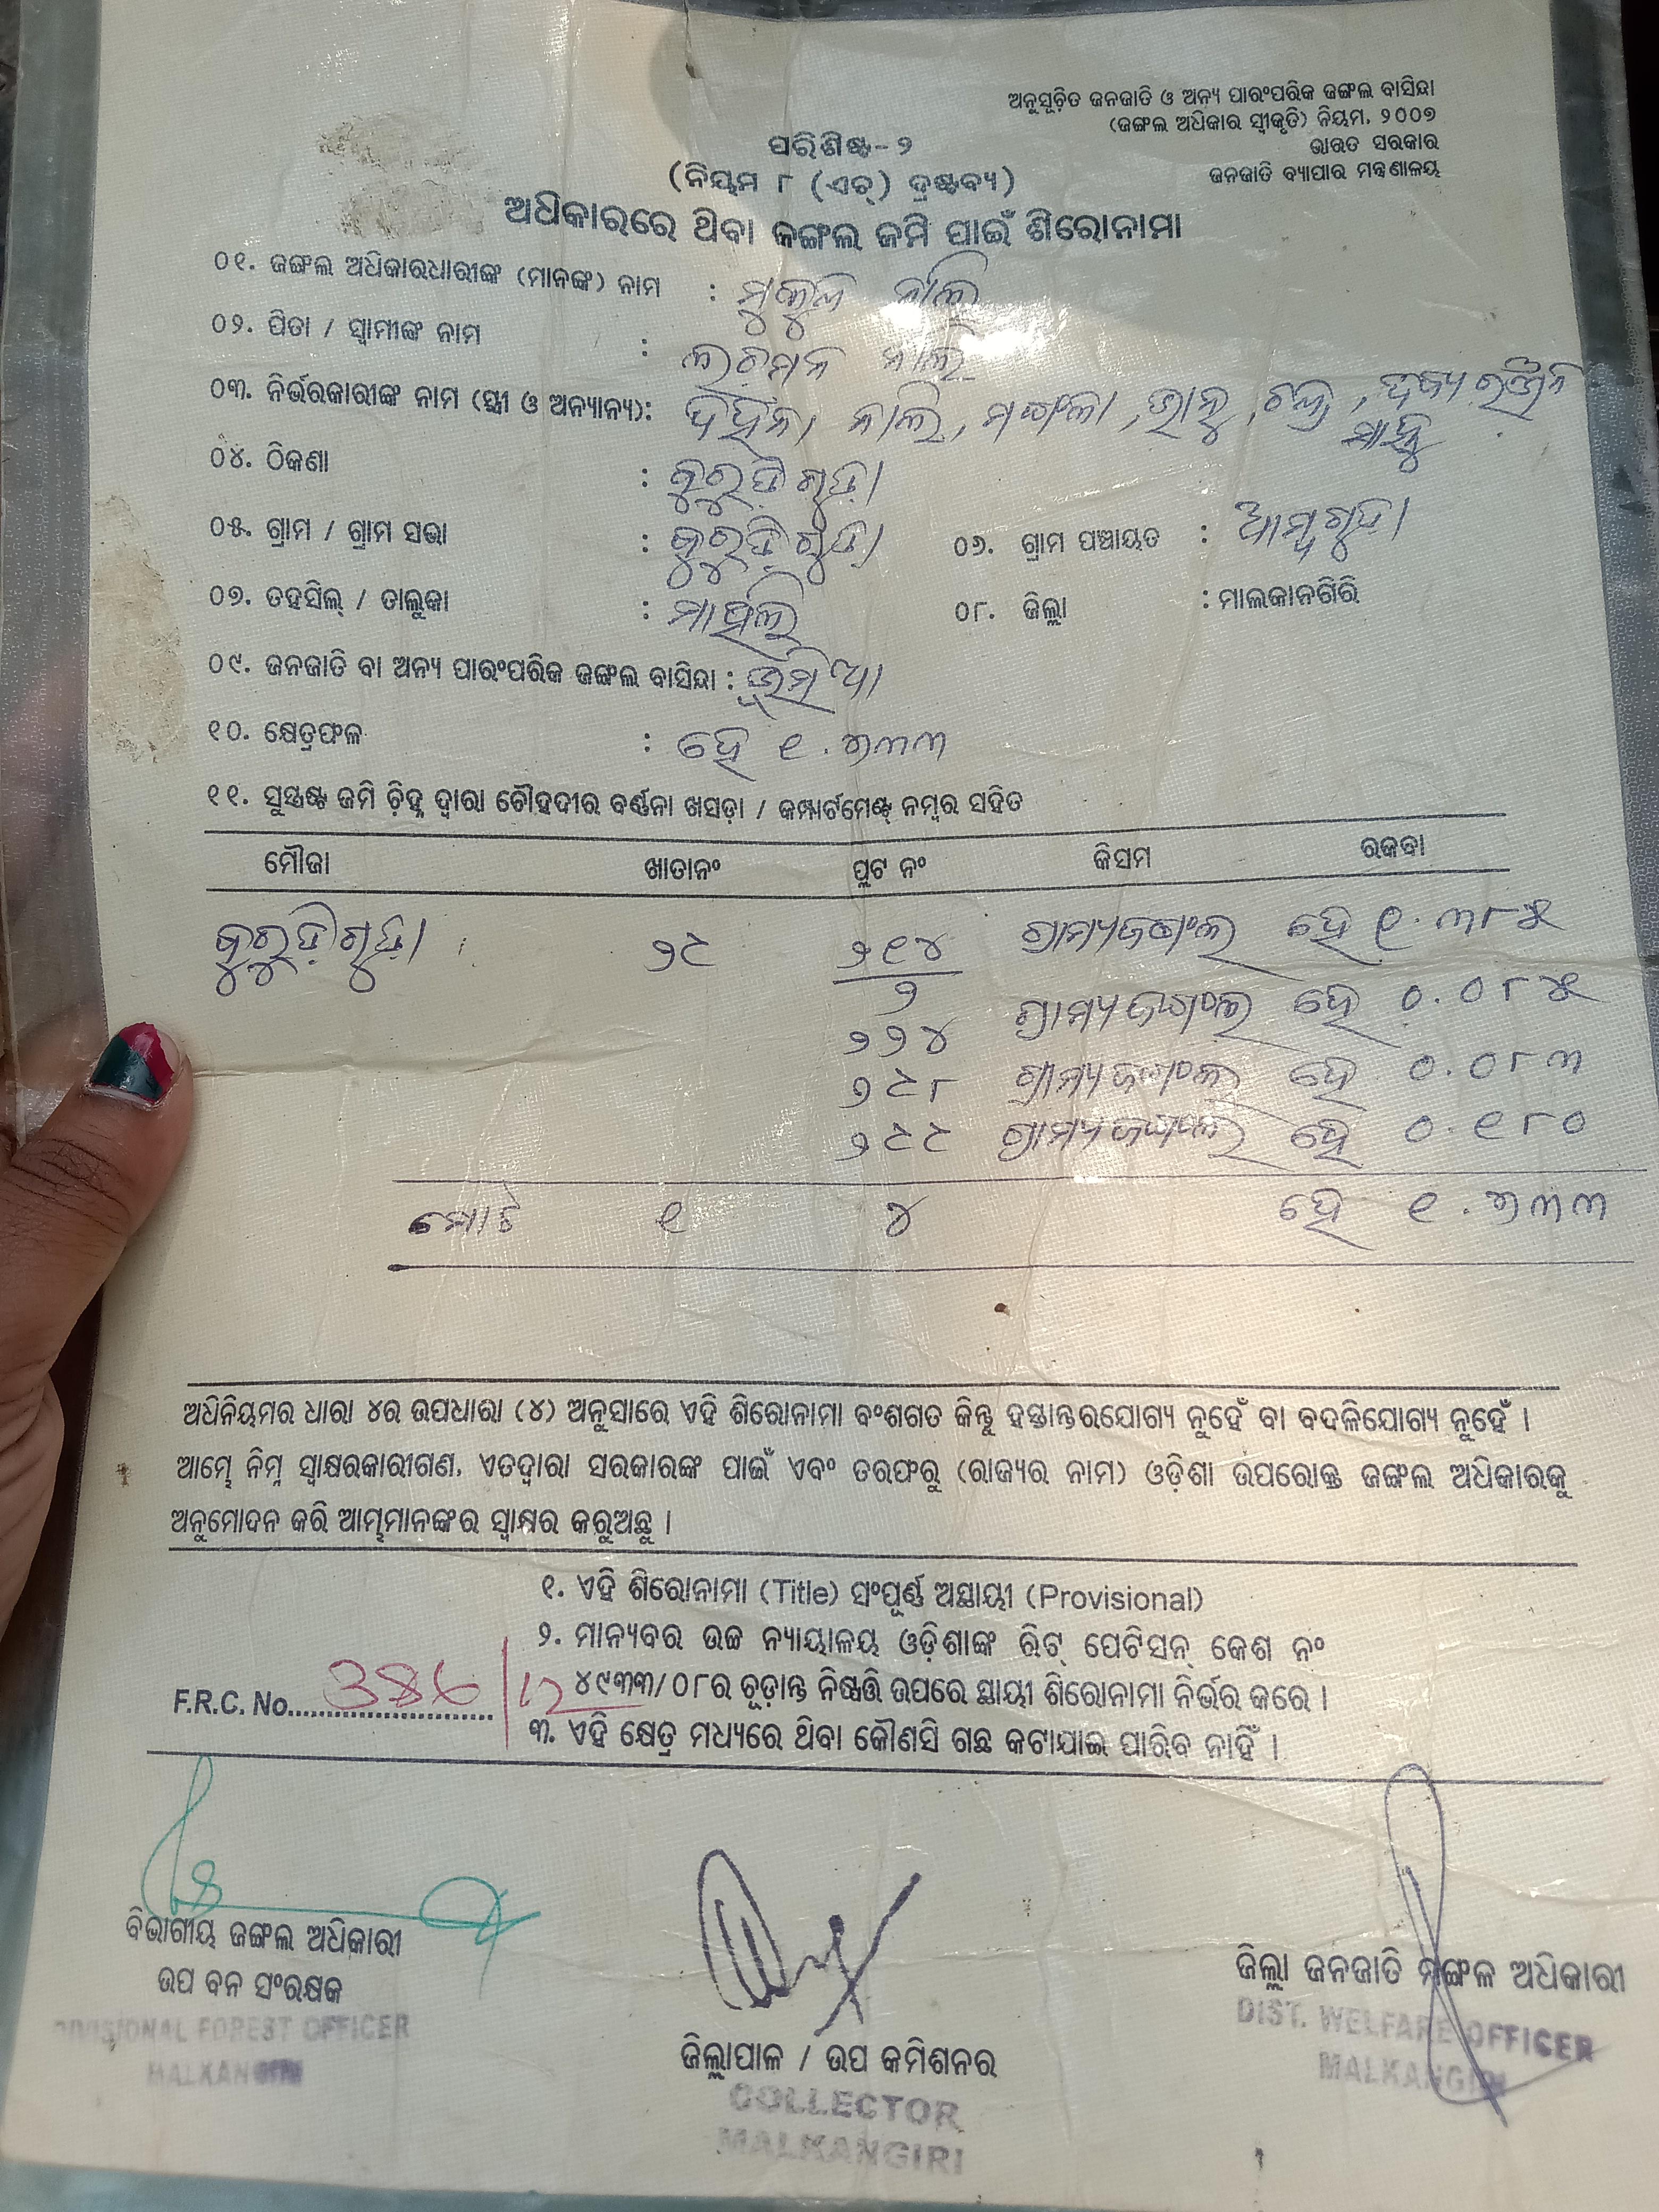 ଅନୁସୂଚିତ ଜନଜାତି ଓ ଅନ୍ୟ ପାରଂପରିକ ଜଙ୍ଗଲ ବାସିନ୍ଦା
(ଜଙ୍ଗଲ ଅଧିକାର ସ୍ୱୀକୃତି) ନିୟମ, ୨୦୦୭
ଭାରତ ସରକାର
ଜନଜାତି ବ୍ୟାପାର ମନ୍ତ୍ରଣାଳୟ
ପରିଶିଷ୍ଟ-୨
(ନିୟମ ୮ (ଏଚ୍) ଦ୍ରଷ୍ଟବ୍ୟ)
ଅଧିକାରରେ ଥିବା ଜଙ୍ଗଲ ଜମି ପାଇଁ ଶିରୋନାମା
୦୧. ଜଙ୍ଗଲ ଅଧିକାରଧାରୀଙ୍କ (ମାନଙ୍କ) ନାମ :
୦୨. ପିତା / ସ୍ୱାମୀଙ୍କ ନାମ : ଲଚମନ
୦୩. ନିର୍ଭରକାରୀଙ୍କ ନାମ (ସ୍ତ୍ରୀ ଓ ଅନ୍ୟାନ୍ୟ):
୦୪. ଠିକଣା : କୁରୁଡ଼ିଗୁଡ଼ା
୦୫. ଗ୍ରାମ / ଗ୍ରାମ ସଭା : କୁରୁଡ଼ିଗୁଡ଼ା ୦୬. ଗ୍ରାମ ପଞ୍ଚାୟତ : ଆମ୍ବଗୁଡା
୦୭. ତହସିଲ୍ / ତାଲୁକା : ମାଥିଲି ୦୮. ଜିଲ୍ଲା : ମାଲକାନଗିରି
୦୯. ଜନଜାତି ବା ଅନ୍ୟ ପାରଂପରିକ ଜଙ୍ଗଲ ବାସିନ୍ଦା : ଭୂମିଆ
୧୦. କ୍ଷେତ୍ରଫଳ : ହେ ୧.୭୩୩
୧୧. ସୁସ୍ପଷ୍ଟ ଜମି ଚିହ୍ନ ଦ୍ୱାରା ଚୌହଦୀର ବର୍ଣ୍ଣନା ଖସଡ଼ା / କମ୍ପାର୍ଟମେଣ୍ଟ୍ ନମ୍ବର ସହିତ
ମୌଜା ଖାତାନଂ ପ୍ଲଟ ନଂ କିସମ ରକବା
କୁରୁଡ଼ିଗୁଡ଼ା ୨୯ ୨୧୪/୨ ଗ୍ରାମ୍ୟଜଙ୍ଗଲ ହେ ୧.୩୮୫
୨୨୪ ଗ୍ରାମ୍ୟଜଙ୍ଗଲ ହେ ୦.୦୮୫
୨୯୮ ଗ୍ରାମ୍ୟଜଙ୍ଗଲ ହେ ୦.୦୮୩
୨୯୯ ଗ୍ରାମ୍ୟଜଙ୍ଗଲ ହେ ୦.୧୮୦
ମୋଟ ୧ ୪ ହେ ୧.୭୩୩
ଅଧିନିୟମର ଧାରା ୪ର ଉପଧାରା (୪) ଅନୁସାରେ ଏହି ଶିରୋନାମା ବଂଶଗତ କିନ୍ତୁ ହସ୍ତାନ୍ତରଯୋଗ୍ୟ ନୁହେଁ ବା ବଦଳିଯୋଗ୍ୟ ନୁହେଁ ।
ଆମ୍ଭେ ନିମ୍ନ ସ୍ୱାକ୍ଷରକାରୀଗଣ, ଏତଦ୍ୱାରା ସରକାରଙ୍କ ପାଇଁ ଏବଂ ତରଫରୁ (ରାଜ୍ୟର ନାମ) ଓଡ଼ିଶା ଉପରୋକ୍ତ ଜଙ୍ଗଲ ଅଧିକାରକୁ
ଅନୁମୋଦନ କରି ଆମ୍ଭମାନଙ୍କର ସ୍ୱାକ୍ଷର କରୁଅଛୁ ।
୧. ଏହି ଶିରୋନାମା (Title) ସଂପୂର୍ଣ୍ଣ ଅସ୍ଥାୟୀ (Provisional)
୨. ମାନ୍ୟବର ଉଚ୍ଚ ନ୍ୟାୟାଳୟ ଓଡ଼ିଶାଙ୍କ ରିଟ୍ ପେଟିସନ୍ କେଶ ନଂ
୪୯୩୩/୦୮ର ଚୂଡ଼ାନ୍ତ ନିଷ୍ପତ୍ତି ଉପରେ ସ୍ଥାୟୀ ଶିରୋନାମା ନିର୍ଭର କରେ ।
F.R.C. No.
୩. ଏହି କ୍ଷେତ୍ର ମଧ୍ୟରେ ଥିବା କୌଣସି ଗଛ କଟାଯାଇ ପାରିବ ନାହିଁ ।
ବିଭାଗୀୟ ଜଙ୍ଗଲ ଅଧିକାରୀ
ଉପ ବନ ସଂରକ୍ଷକ
DIVISIONAL FOREST OFFICER
MALKANGIRI
ଜିଲ୍ଲାପାଳ / ଉପ କମିଶନର
COLLECTOR
MALKANGIRI
ଜିଲ୍ଲା ଜନଜାତି ମଙ୍ଗଳ ଅଧିକାରୀ
DIST. WELFARE OFFICER
MALKANGIRI